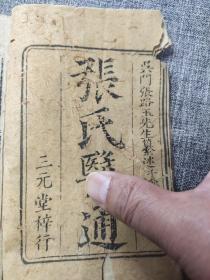 吳門張路玉先生纂述
張氏醫通
三元堂梓行